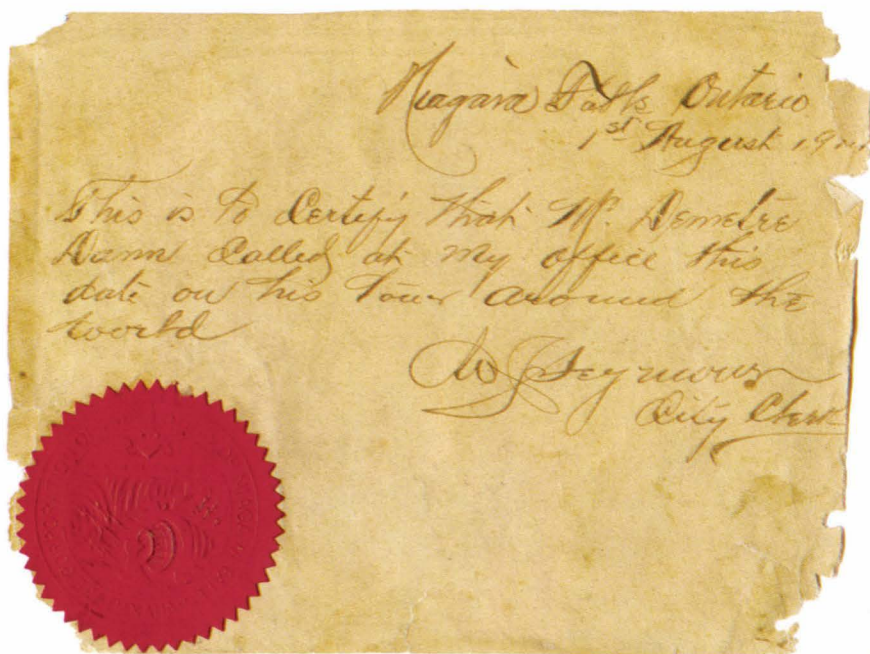 Niagara Falls Ontario
1st August 19
This is to Certify that Mr. Demetre
Dann Called at my office this
date on his Tour around the
World
W J Seymour
City Clerk